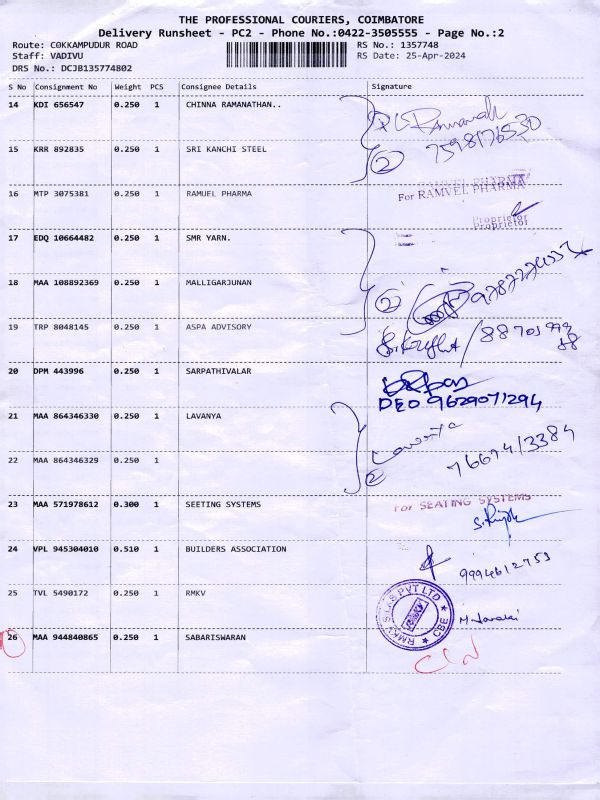 THE PROFESSIONAL COURIERS, COIMBATORE
Delivery Runsheet - PC2 - Phone No.:0422-3505555 - Page No.:2
Route: COKKAMPUDUR ROAD RS No.: 1357748
Staff: VADIVU RS Date: 25-Apr-2024
DRS No.: DCJB135774802
S No Consignment No Weight PCS Consignee Details Signature
14 KDI 656547 0.250 1 CHINNA RAMANATHAN..
7598176530
15 KRR 892835 0.250 1 SRI KANCHI STEEL
2
16 MTP 3075381 0.250 1 RAMUEL PHARMA
For RAMVEL PHARMA
Proprietor
Proprietor
17 EDQ 10664482 0.250 1 SMR YARN.
18 MAA 108892369 0.250 1 MALLIGARJUNAN
2
19 TRP 8048145 0.250 1 ASPA ADVISORY
20 DPM 443996 0.250 1 SARPATHIVALAR
DEO 9629071294
21 MAA 864346330 0.250 1 LAVANYA
22 MAA 864346329 0.250 1
2
23 MAA 571978612 0.300 1 SEETING SYSTEMS
For SEATING SYSTEMS
24 VPL 945304010 0.510 1 BUILDERS ASSOCIATION
9994612753
25 TVL 5490172 0.250 1 RMKV
RMKV SILKS PVT LTD
CBE
26 MAA 944840865 0.250 1 SABARISWARAN